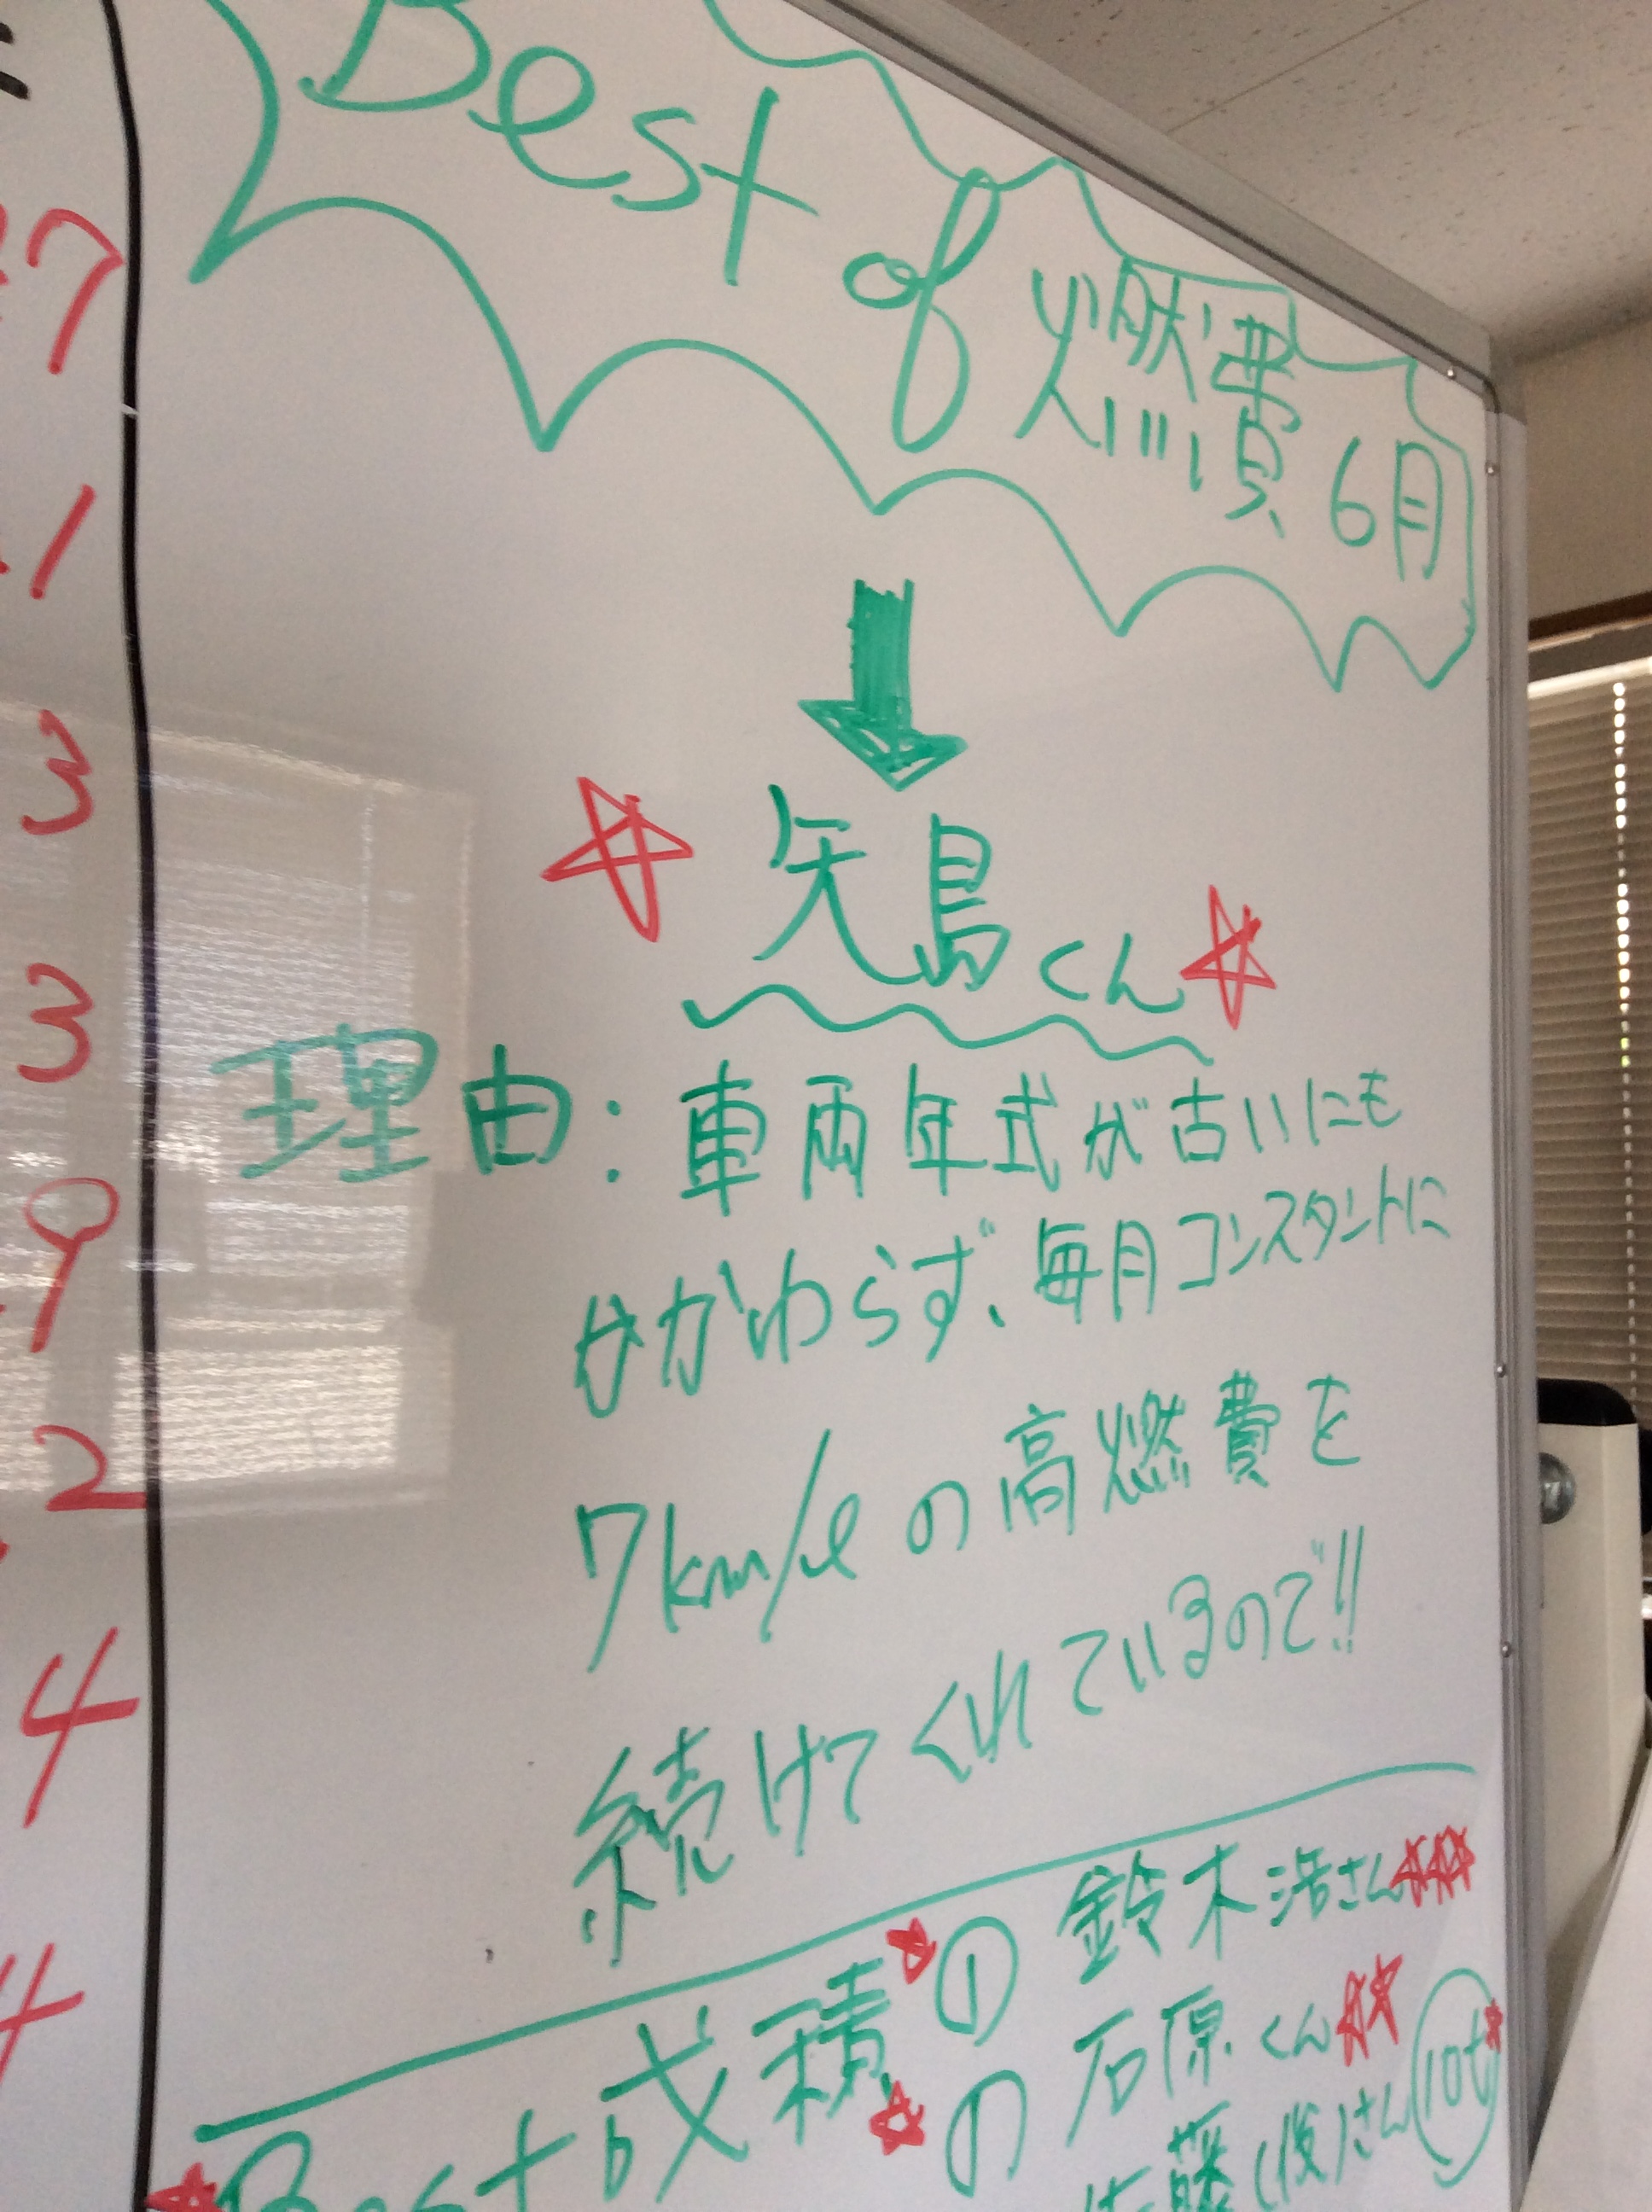 Best of 燃費 6月
矢島くん
理由:車両年式が古いにも
かかわらず、毎月コンスタントに
7km/ℓの高燃費を
続けてくれているので!!
Best 成積
① 鈴木浩さん
石原くん
佐藤(俊)さん
10t
7
1
3
3
9
2
4
4